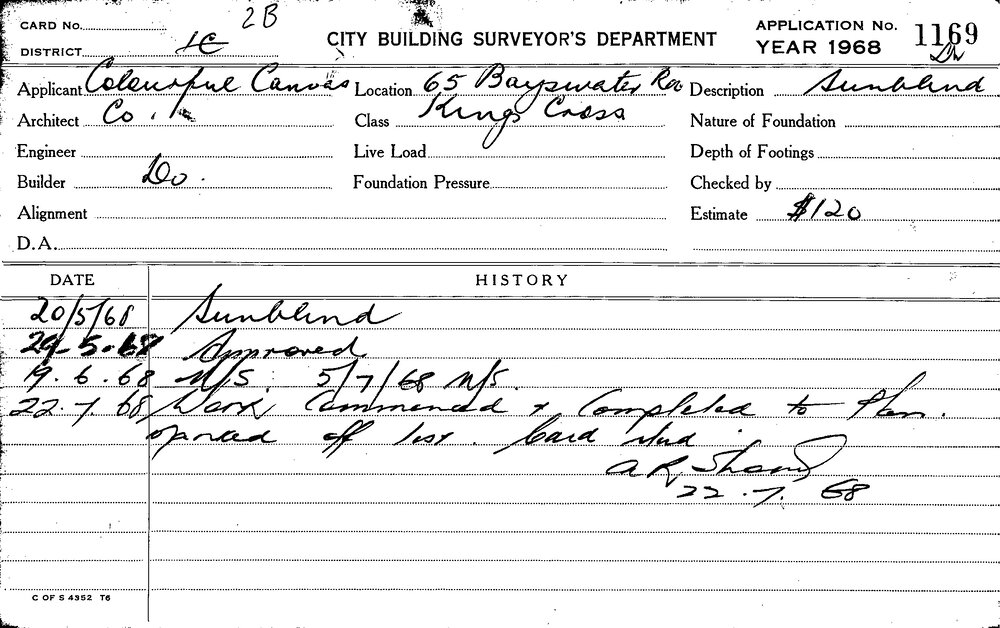 CARD No. 2B
DISTRICT 1C
CITY BUILDING SURVEYOR'S DEPARTMENT
APPLICATION No. 1169
YEAR 1968
Applicant Colourful Canvas Location 65 Bayswater Description Sunblind
Architect Co. Class Kings Cross Nature of Foundation
Engineer Live Load Depth of Footings
Builder Do. Foundation Pressure Checked by
Alignment Estimate $120
D.A.
DATE HISTORY
20/5/68 Sunblind
29-5-68 Approved
19.6.68 N/S. 5/7/68 N/S.
22.7.68 Work Commenced + Completed to Plan.
off list. Card
22.7.68
C OF S 4352 T6